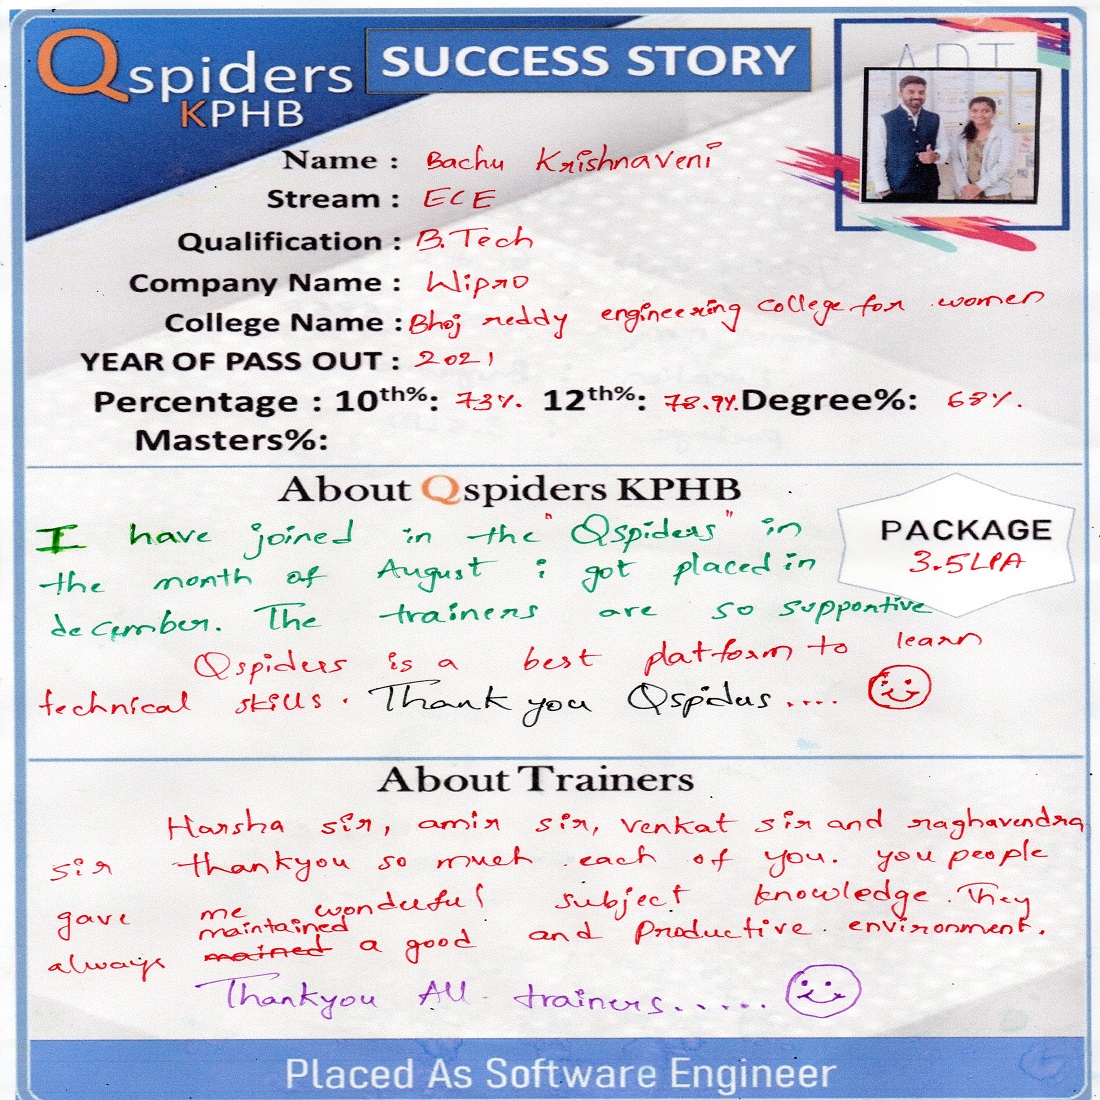 Qspiders
KPHB
SUCCESS STORY
ADT
Name : Bachu Krishnaveni
Stream : ECE
Qualification : B.Tech
Company Name : Wipro
College Name : Bhoj reddy engineering college for women
YEAR OF PASS OUT : 2021
Percentage : 10th%: 73%. 12th%: 78.9%. Degree%: 68%.
Masters%:
About Qspiders KPHB
I have joined in the "Qspiders" in
the month of August i got placed in
december. The trainers are so supportive
Qspiders is a best platform to learn
technical skills. Thank you Qspiders....
PACKAGE
3.5LPA
About Trainers
Harsha sir, amir sir, venkat sir and raghavendra
sir thankyou so much each of you. you people
gave me wonderful subject knowledge. They
always mained maintained a good and Productive environment.
Thankyou All trainers......
Placed As Software Engineer